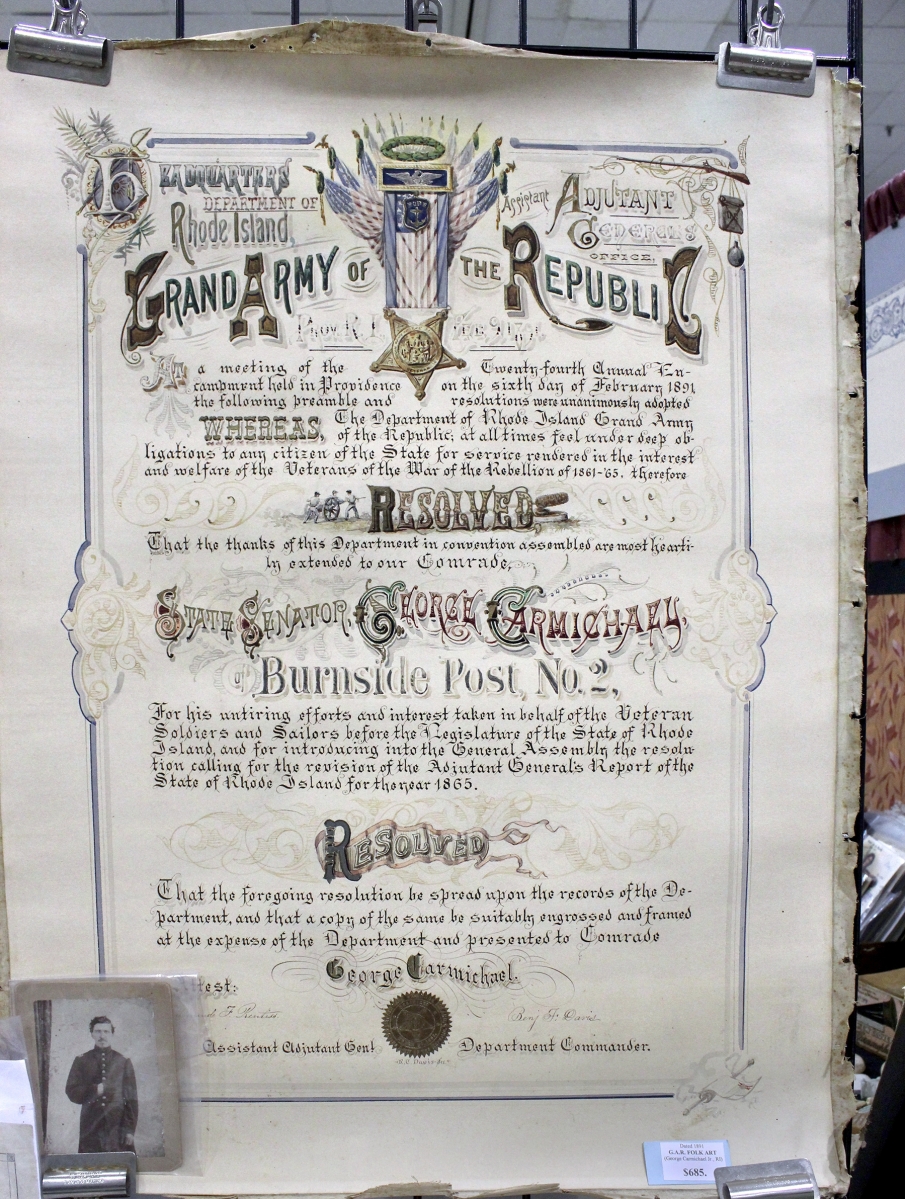 HEADQUARTERS
DEPARTMENT OF
Rhode Island,
Assistant ADJUTANT
GENERAL'S
OFFICE,
GRAND ARMY OF THE REPUBLIC
At a meeting of the Twenty-fourth Annual En-
campment held in Providence on the sixth day of February 1891
the following preamble and resolutions were unanimously adopted
WHEREAS, The Department of Rhode Island Grand Army
of the Republic; at all times feel under deep ob-
ligations to any citizen of the State for service rendered in the interest
and welfare of the Veterans of the War of the Rebellion of 1861-'65, therefore
RESOLVED,
That the thanks of this Department in convention assembled are most hearti-
ly extended to our Comrade,
STATE SENATOR, GEORGE CARMICHAEL,
of Burnside Post, No. 2,
For his untiring efforts and interest taken in behalf of the Veteran
Soldiers and Sailors before the Legislature of the State of Rhode
Island, and for introducing into the General Assembly the resolu-
tion calling for the revision of the Adjutant General's Report of the
State of Rhode Island for the year 1865.
RESOLVED
That the foregoing resolution be spread upon the records of the De-
partment, and that a copy of the same be suitably engrossed and framed
at the expense of the Department and presented to Comrade
George Carmichael.
test:
Benj F. Davis
Assistant Adjutant Genl Department Commander.
Dated 1891
G.A.R. FOLK ART
(George Carmichael Jr., RI)
$685.